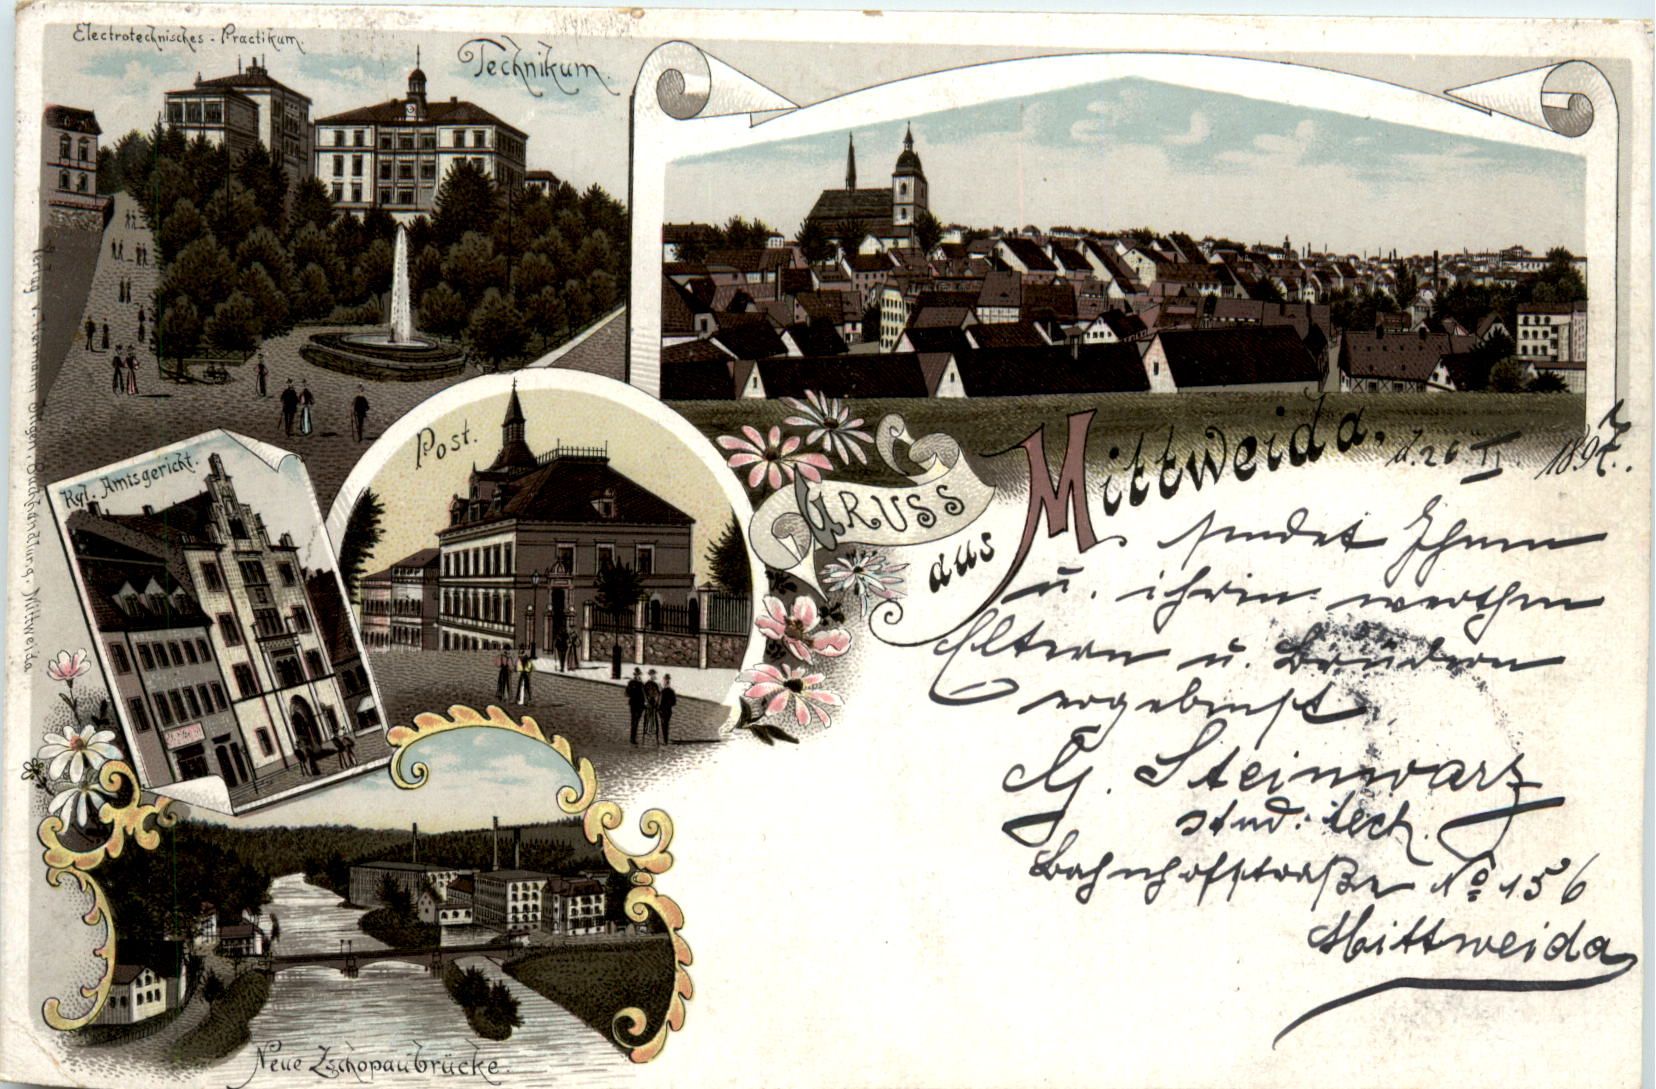 Electrotechnisches - Practikum.
Technikum.
Kgl. Amtsgericht.
Post.
Gruss
aus
Mittweida, d. 26 II. 1897.
sendet Ihnen
u. ihren werthen
Eltern u. Brüdern
ergebenst
G. Steinwarz
stud. tech.
Bahnhofstraße No 156
Mittweida
Neue Zschopaubrücke.
Buchhandlung, Mittweida